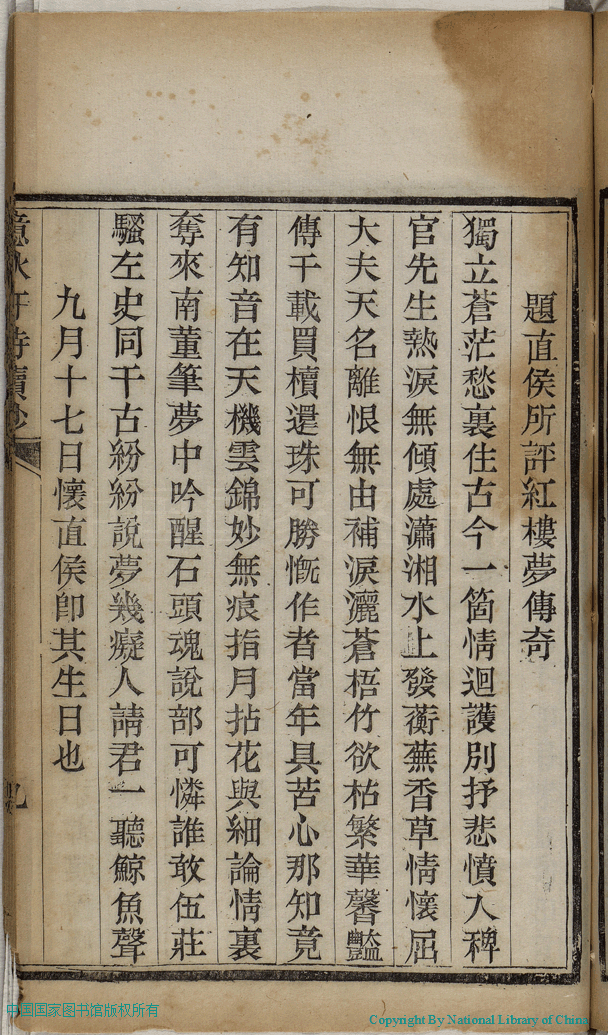 題直侯所評紅樓夢傳奇
獨立蒼茫愁裏住古今一箇情迴護別抒悲憤入稗
官先生熱淚無傾處瀟湘水上發蘅蕪香草情懷屈
大夫天名離恨無由補淚灑蒼梧竹欲枯繁華馨豔
傳千載買櫝還珠可勝慨作者當年具苦心那知竟
有知音在天機雲錦妙無痕指月拈花與細論情裏
奪來南董筆夢中吟醒石頭魂說部可憐誰敢伍莊
騷左史同千古紛紛說夢幾癡人請君一聽鯨魚聲
九月十七日懷直侯卽其生日也
中国国家图书馆版权所有
Copyright By National Library of China